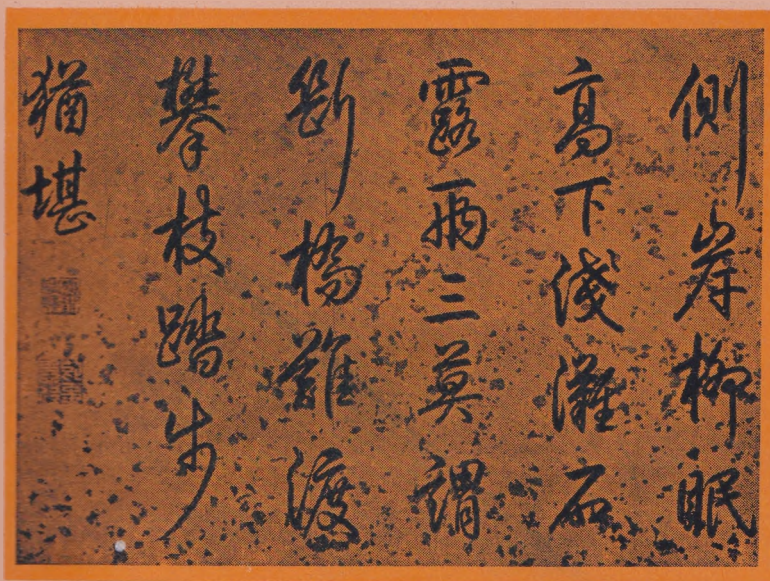 側岸柳眠
高下淺灘石
露兩三莫謂
斷橋難渡
攀枝踏步
猶堪